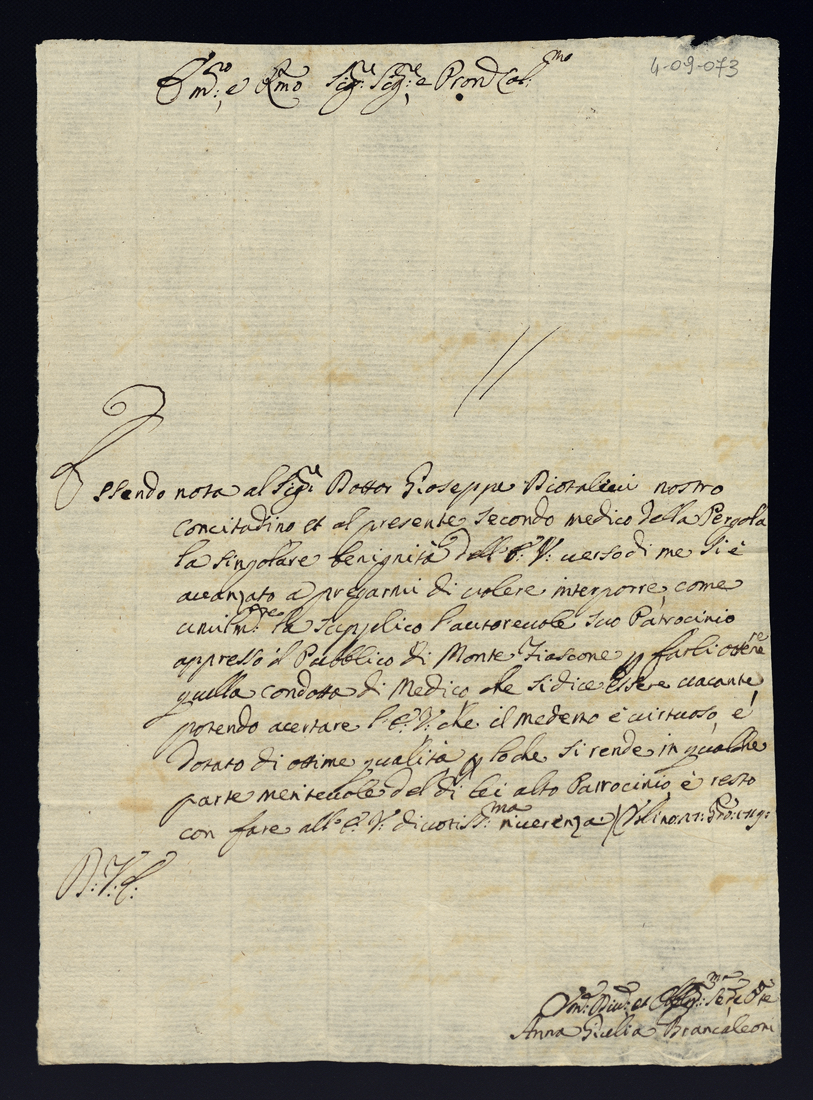 4-09-073
Em:mo e Rmo Sig:re Sig:re e Pron Col:mo
Essendo nota al Sig:re Dottor Gioseppe nostro
concitadino et al presente secondo medico della Pergola
la singolare benignità dell'E:V: verso di me si è
avanzato a pregarmi di volere interporre, come
umilm:te la supplico l'autorevole suo Patrocinio
appresso il Pubblico di Monte Fiascone p farli ottenere
quella condotta di Medico, che si dice essere vacante,
potendo acertare l'E:V: che il medemo è virtuoso, e
dotato di ottime qualità p lo che si rende in qualche
parte meritevole del di lei alto Patrocinio, e resto
con fare all'E:V: divotiss:ma riverenza
D:V:E:
Um: Div: et Obblig:ma Ser:
Anna Giulia Brancaleoni